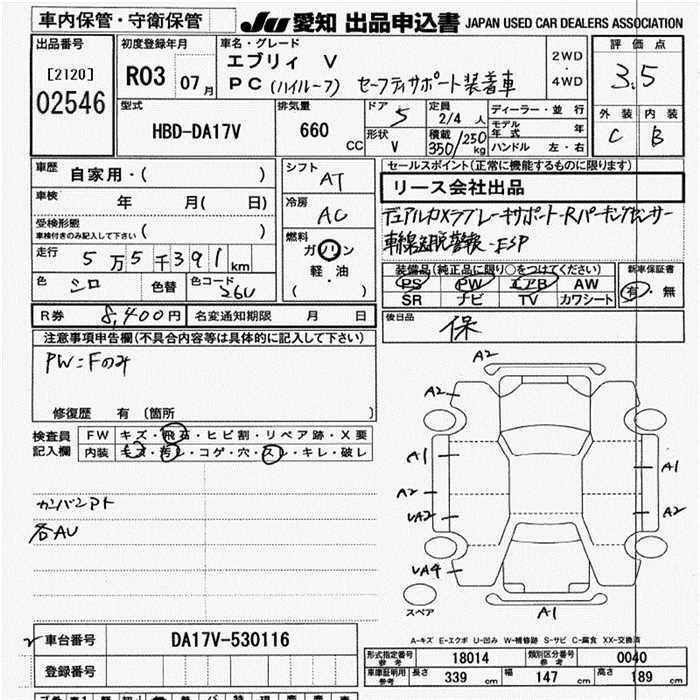 車内保管・守衛保管
JU 愛知 出品申込書 JAPAN USED CAR DEALERS ASSOCIATION
出品番号
[2120]
02546
初度登録年月
R03 07月
車名・グレード
エブリィ V
PC (ハイルーフ) セーフティサポート装着車
2WD
・
4WD
評価点
3.5
外装 内装
C B
型式
HBD-DA17V
排気量
660
CC
ドア 5
形状 V
定員
2/4 人
積載
350/250 kg
ディーラー・並行
モデル年式 年
ハンドル 左・右
車歴
自家用・( )
車検
年 月( 日)
受検形態
車検付きのみ記入して下さい ( )
走行
5万5千391km
色 シロ 色替 色コード 26U
シフト
AT
冷房
AC
燃料
ガソリン
軽・油
( )
セールスポイント(正常に機能するものに限ります)
リース会社出品
デュアルカメラブレーキサポート-Rパーキングセンサー
車線逸脱警報-ESP
装備品(純正品に限り○をつけてください)
PS PW エアB AW
SR ナビ TV カワシート
新車保証書
有・無
R券 8,400円 名変通知期限 月 日
後日品
保
注意事項申告欄(不具合内容等は具体的に記入して下さい)
PW=Fのみ
修復歴 有 (箇所 )
検査員
記入欄
FW キズ・飛石・ヒビ割・リペア跡・X要
内装 キズ・汚レ・コゲ・穴・スレ・キレ・破レ
カンバンアト
各AU
A2
A2
A1
A1
A2
UA2
A2
UA4
A1
スペア
A-キズ E-エクボ U-凹み W-補修跡 S-サビ C-腐食 XX-交換済
車台番号 DA17V-530116
登録番号
形式指定番号
参考
18014
類別区分番号
参考
0040
車庫証明用
参考
長さ 339 cm 幅 147 cm 高さ 189 cm